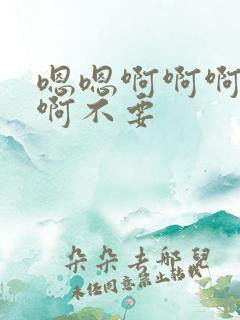 嗯嗯啊啊啊
啊不要
朵朵去哪兒
未经同意禁止转载